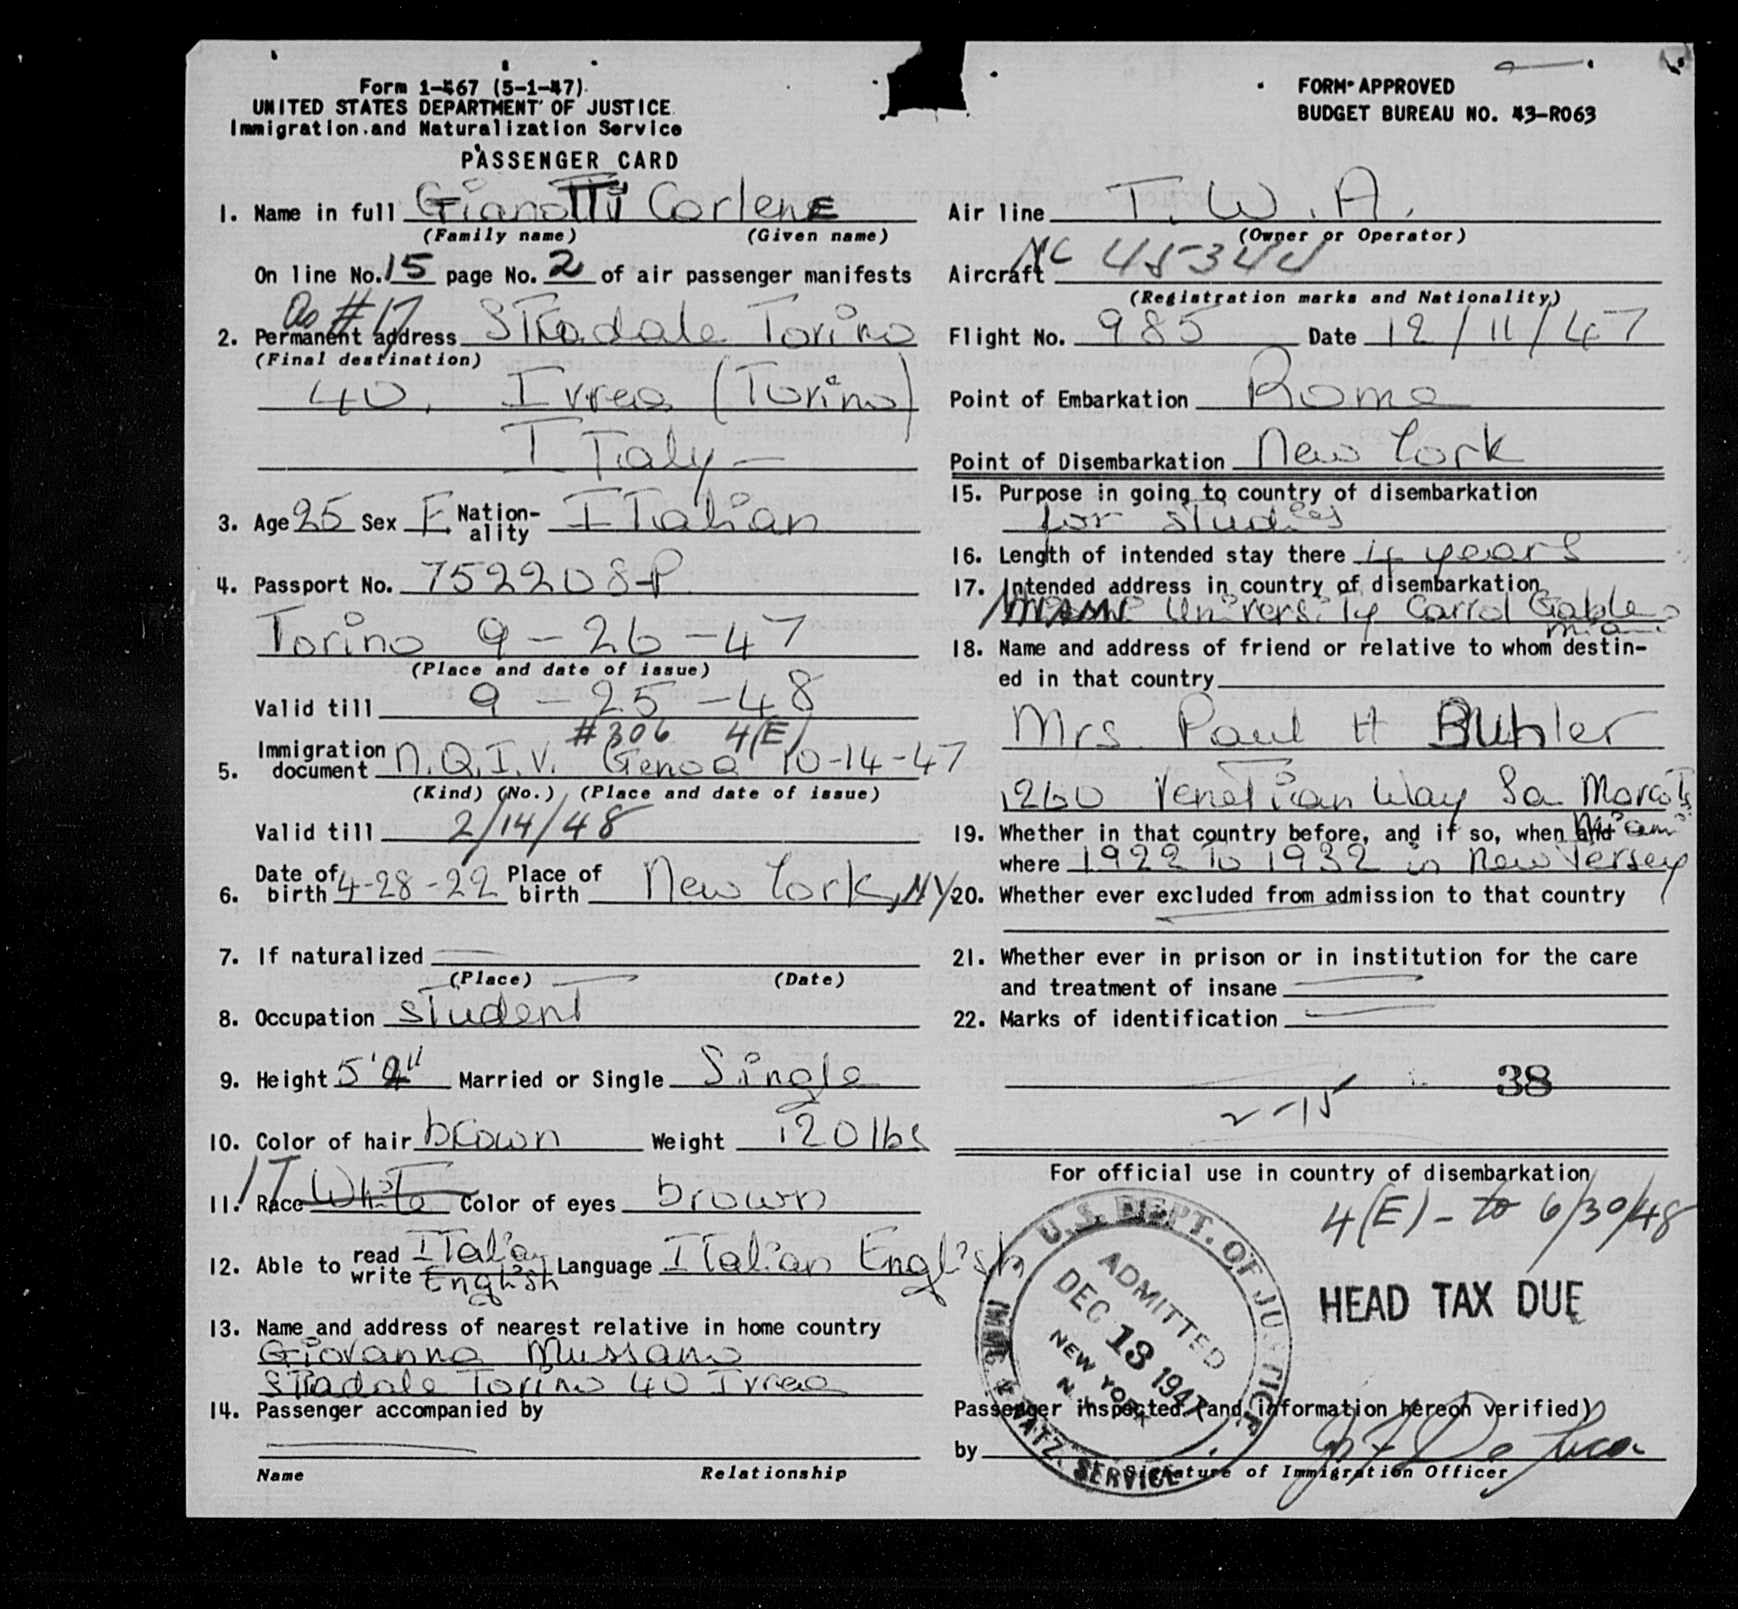 Form 1-467 (5-1-47)
UNITED STATES DEPARTMENT OF JUSTICE
Immigration and Naturalization Service
PASSENGER CARD
1. Name in full Gianotti CorlenE
(Family name) (Given name)
On line No. 15 page No. 2 of air passenger manifests
as #17
2. Permanent address STradale Torino
(Final destination)
40, Ivrea (Torino)
ITaly —
3. Age 25 Sex F. Nationality ITalian
4. Passport No. 752208-P
Torino 9-26-47
(Place and date of issue)
Valid till 9-25-48
#306 4(E)
5. Immigration document N.Q.I.V. Genoa 10-14-47
(Kind) (No.) (Place and date of issue)
Valid till 2/14/48
6. Date of birth 4-28-22 Place of birth New York, NY
7. If naturalized
(Place) (Date)
8. Occupation sTudent
9. Height 5'2" Married or Single Single
10. Color of hair brown Weight 120 lbs
IT
11. Race WhiTe Color of eyes brown
12. Able to read ITalian write English Language ITalian English
13. Name and address of nearest relative in home country
Giovanna Mussano
STradale Torino 40 Ivrea
14. Passenger accompanied by
Name Relationship
FORM APPROVED
BUDGET BUREAU NO. 43-R063
Air line T.W.A.
(Owner or Operator)
Aircraft NC 45344
(Registration marks and Nationality)
Flight No. 985 Date 12/11/47
Point of Embarkation Rome
Point of Disembarkation New York
15. Purpose in going to country of disembarkation
for studies
16. Length of intended stay there 4 years
17. Intended address in country of disembarkation
Miami University Carrol Gables
Miami
18. Name and address of friend or relative to whom destined in that country
Mrs. Paul H Buhler
1260 VeneTian Way Sa Marco Is
Miami
19. Whether in that country before, and if so, when and
where 1922 To 1932 in New Jersey
20. Whether ever excluded from admission to that country
21. Whether ever in prison or in institution for the care
and treatment of insane
22. Marks of identification
38
2-15
For official use in country of disembarkation
4(E) - to 6/30/48
HEAD TAX DUE
U.S. DEPT. OF JUSTICE
IMMIG. & NATZ. SERVICE
ADMITTED
DEC 13 1947
NEW YORK
N.Y.
Passenger inspected (and information hereon verified)
by
Signature of Immigration Officer